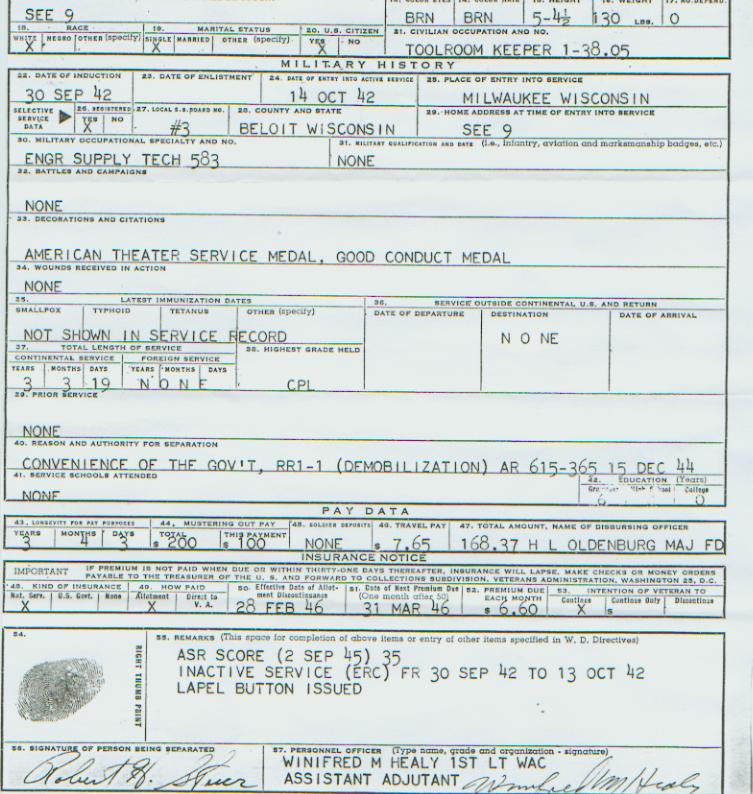 SEE 9
BRN BRN 5-4½ 130 LBS. 0
18. RACE 19. MARITAL STATUS 20. U.S. CITIZEN 21. CIVILIAN OCCUPATION AND NO.
WHITE NEGRO OTHER (specify) SINGLE MARRIED OTHER (specify) YES NO
X X X TOOLROOM KEEPER 1-38.05
MILITARY HISTORY
22. DATE OF INDUCTION 23. DATE OF ENLISTMENT 24. DATE OF ENTRY INTO ACTIVE SERVICE 25. PLACE OF ENTRY INTO SERVICE
30 SEP 42 14 OCT 42 MILWAUKEE WISCONSIN
SELECTIVE SERVICE DATA 26. REGISTERED YES NO 27. LOCAL S.S. BOARD NO. 28. COUNTY AND STATE 29. HOME ADDRESS AT TIME OF ENTRY INTO SERVICE
X #3 BELOIT WISCONSIN SEE 9
30. MILITARY OCCUPATIONAL SPECIALTY AND NO. 31. MILITARY QUALIFICATION AND DATE (i.e., infantry, aviation and marksmanship badges, etc.)
ENGR SUPPLY TECH 583 NONE
32. BATTLES AND CAMPAIGNS
NONE
33. DECORATIONS AND CITATIONS
AMERICAN THEATER SERVICE MEDAL, GOOD CONDUCT MEDAL
34. WOUNDS RECEIVED IN ACTION
NONE
35. LATEST IMMUNIZATION DATES 36. SERVICE OUTSIDE CONTINENTAL U.S. AND RETURN
SMALLPOX TYPHOID TETANUS OTHER (specify) DATE OF DEPARTURE DESTINATION DATE OF ARRIVAL
NOT SHOWN IN SERVICE RECORD N O NE
37. TOTAL LENGTH OF SERVICE 38. HIGHEST GRADE HELD
CONTINENTAL SERVICE FOREIGN SERVICE
YEARS MONTHS DAYS YEARS MONTHS DAYS
3 3 19 N O N E CPL
39. PRIOR SERVICE
NONE
40. REASON AND AUTHORITY FOR SEPARATION
CONVENIENCE OF THE GOV'T, RR1-1 (DEMOBILIZATION) AR 615-365 15 DEC 44
41. SERVICE SCHOOLS ATTENDED 42. EDUCATION (Years)
College
NONE 0
PAY DATA
43. LONGEVITY FOR PAY PURPOSES 44. MUSTERING OUT PAY 45. SOLDIER DEPOSITS 46. TRAVEL PAY 47. TOTAL AMOUNT, NAME OF DISBURSING OFFICER
YEARS MONTHS DAYS TOTAL THIS PAYMENT
3 4 3 $ 200 $ 100 NONE $ 7.65 168.37 H L OLDENBURG MAJ FD
INSURANCE NOTICE
IMPORTANT IF PREMIUM IS NOT PAID WHEN DUE OR WITHIN THIRTY-ONE DAYS THEREAFTER, INSURANCE WILL LAPSE. MAKE CHECKS OR MONEY ORDERS
PAYABLE TO THE TREASURER OF THE U. S. AND FORWARD TO COLLECTIONS SUBDIVISION, VETERANS ADMINISTRATION, WASHINGTON 25, D.C.
48. KIND OF INSURANCE 49. HOW PAID 50. Effective Date of Allotment Discontinuance 51. Date of Next Premium Due (One month after 50) 52. PREMIUM DUE EACH MONTH 53. INTENTION OF VETERAN TO
Nat. Serv. U.S. Govt. None Allotment Direct to V. A. Continue Continue Only Discontinue
X X 28 FEB 46 31 MAR 46 $ 6.60 X $
54. RIGHT THUMB PRINT
55. REMARKS (This space for completion of above items or entry of other items specified in W. D. Directives)
ASR SCORE (2 SEP 45) 35
INACTIVE SERVICE (ERC) FR 30 SEP 42 TO 13 OCT 42
LAPEL BUTTON ISSUED
56. SIGNATURE OF PERSON BEING SEPARATED 57. PERSONNEL OFFICER (Type name, grade and organization - signature)
WINIFRED M HEALY 1ST LT WAC
Robert H. ASSISTANT ADJUTANT Winifred M Healy